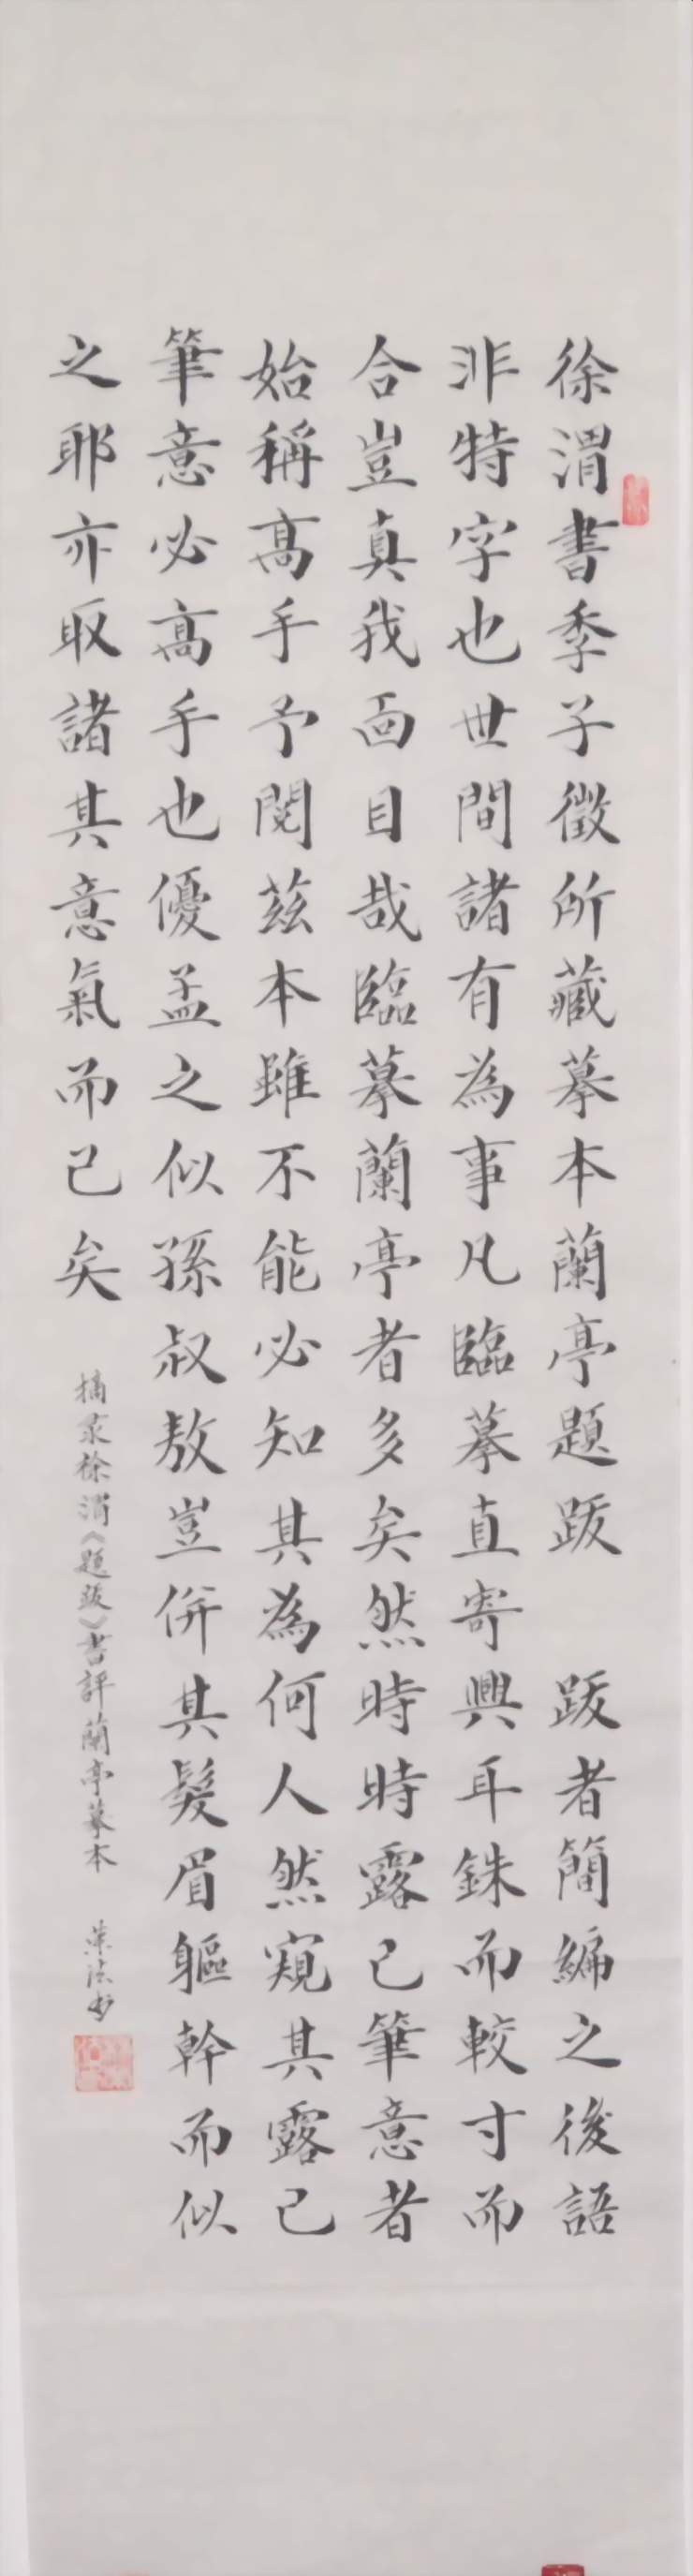 徐渭書季子徵所藏摹本蘭亭題跋 跋者簡編之後語
非特字也世間諸有為事凡臨摹直寄興耳銖而較寸而
合豈真我面目哉臨摹蘭亭者多矣然時時露己筆意者
始稱高手予閱茲本雖不能必知其為何人然窺其露己
筆意必高手也優孟之似孫叔敖豈併其髮眉軀幹而似
之耶亦取諸其意氣而已矣
摘录徐渭《題跋》書評蘭亭摹本